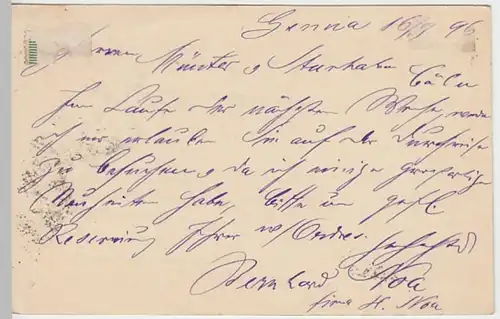 Genua 16/9 96
Herren Münter & Sturhahn
Cöln
Im Laufe der nächsten Woche, werde
ich mir erlauben Sie auf der Durchreise
zu besuchen, & da ich einige
Neuheiten habe, bitte um gefl.
Reservirung Ihrer w/ Ordres.
Bernhard Noa
firma H. Noa